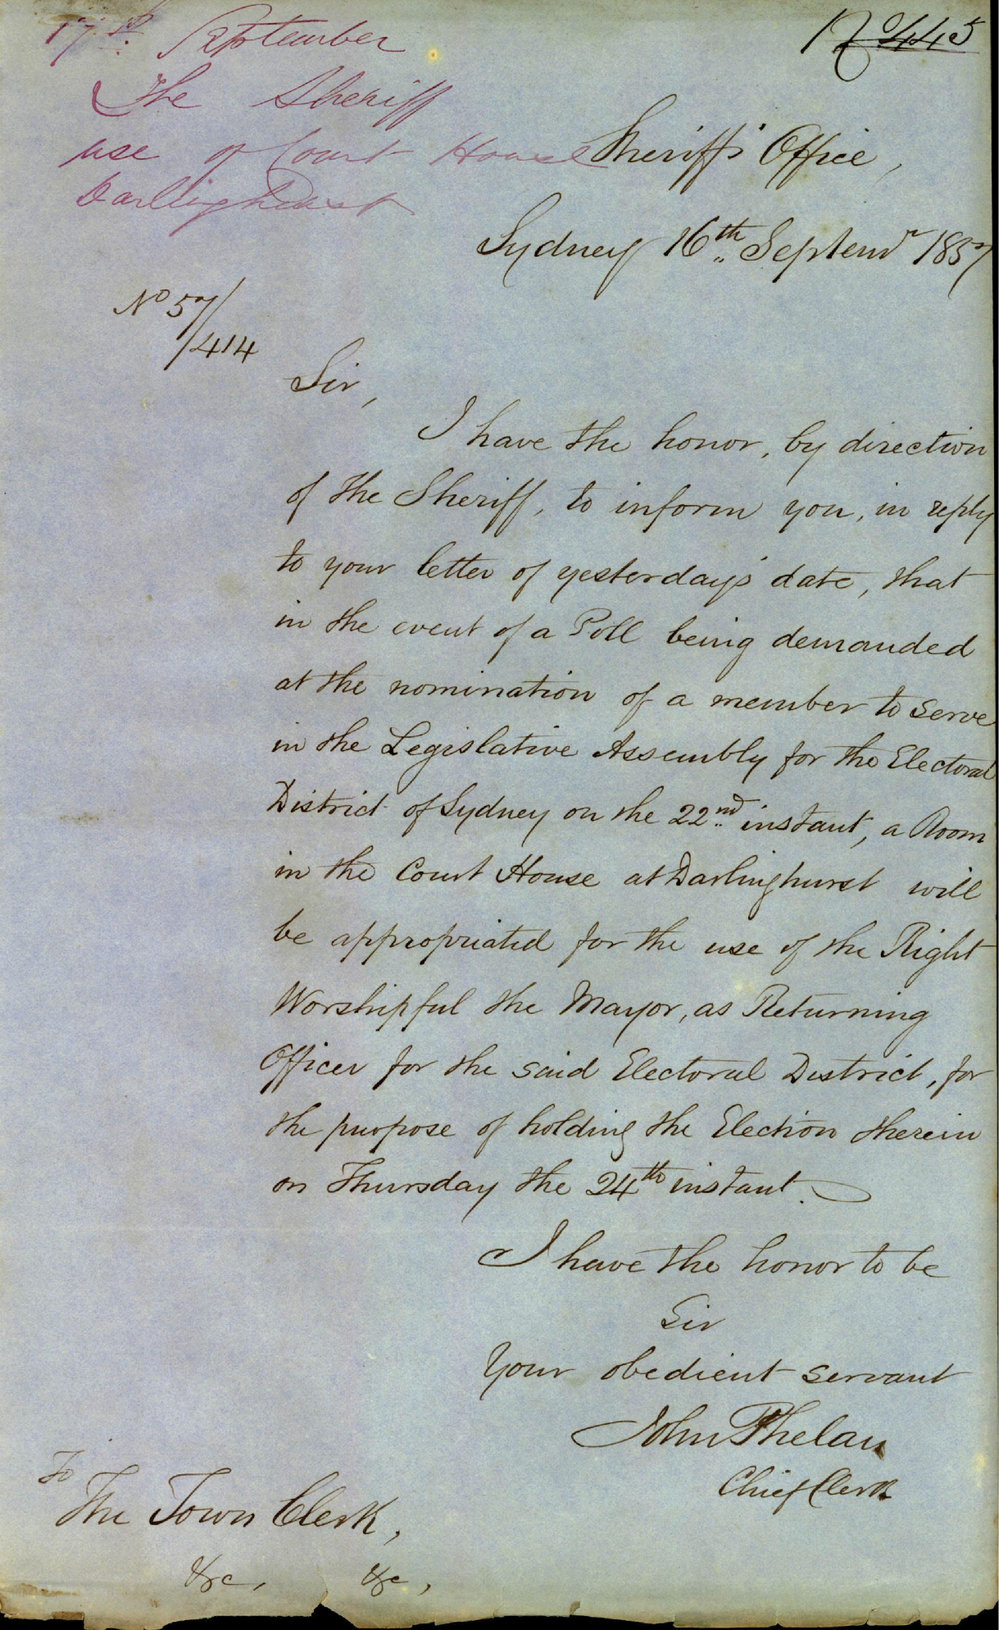 17th. September
The Sheriff
use of Court House
Darlinghurst
No 445
Sheriff's Office,
Sydney 16th. Septemr 1857
No 57/
/414
Sir,
I have the honor, by direction
of the Sheriff, to inform you, in reply
to your letter of yesterday's date, that
in the event of a Poll being demanded
at the nomination of a member to serve
in the Legislative Assembly for the Electoral
District of Sydney on the 22nd. instant, a Room
in the Court House at Darlinghurst will
be appropriated for the use of the Right
Worshipful the Mayor, as Returning
Officer for the said Electoral District, for
the purpose of holding the Election therein
on Thursday the 24th instant.
I have the honor to be
Sir
Your obedient servant
John Phelan
Chief Clerk
To
The Town Clerk,
&c, &c,